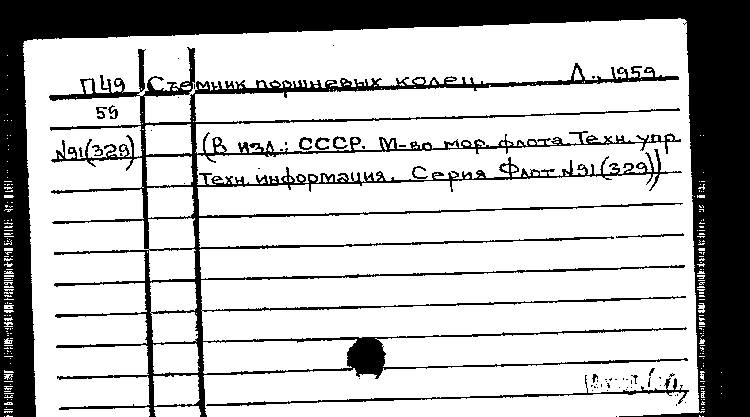 П49 Съемник поршневых колец. Л., 1959.
59
N91(329) (В изд.: СССР. М-во мор. флота Техн. упр
Техн. информация. Серия Флот N91(329))